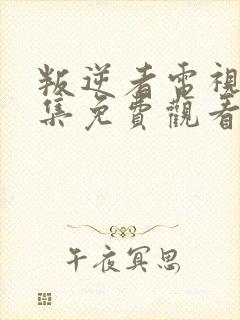 叛逆者電視
集免費觀看
午夜冥思